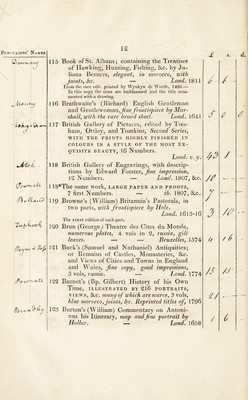 12
PURCHASERS' NAMES
£ s. d.
115 Book of St. Albans; containing the Treatises
of Hawking, Hunting, Fishing, &c. by Ju-
liana Berners, elegant, in morocco, with
joints, &c. — Lond. 1811
From the rare edit. printed by Wynkyn de Worde, 1496.—
In this copy the arms are emblazoned and the title orna-
mented with a drawing.
Money
116 Brathwaite's (Richard) English Gentleman
and Gentlewoman, fine frontispiece by Mar-
shall, with the rare broad sheet. Lond. 1641
117 British Gallery of Pictures, edited by Tres-
ham, Ottley, and Tomkins, Second Series,
WITH THE PRINTS HIGHLY FINISHED IN
COLOURS IN A STYLE OF THE MOST EX-
QUISITE BEAUTY, 16 Numbers.
Lond. v. y.
43
118 British Gallery of Engravings, with descrip-
tions by Edward Forster, fine impression,
12 Numbers. — Lond. 1807, &c.
10
118*The same work, LARGE PAPER AND PROOFS,
7 first Numbers. — ib. 1807, &c.
7
119 Browne's (William) Britannia's Pastorals, in
two parts, with frontispiece by Hole.
Lond. 1613-16
3 10
The FIRST edition of each part.
120 Bree (George) Theatre des Cites du Monde,
numerous plates, 4 vols in 2, russia, gilt
leaves. — — Bruxelles, 1574
4 16
121 Buck's (Samuel and Nathaniel) Antiquities;
or Remains of Castles, Monasteries, &c.
and Views of Cities and Towns in England
and Wales, fine copy, good impressions,
3 vols, russia. — Lond. 1774
15 15
122 Burnet's (Bp. Gilbert) History of his Own
Time, ILLUSTRATED BY 216 PORTRAITS,
VIEWS, &c. many of which are scarce, 3 vols,
blue morocco, joints, &c. Reprinted titles of, 1796
21
123 Burton's (William) Commentary on Antoni-
nus his Itinerary, map and fine portrait by
Hollar. — — Lond. 1658
1 6